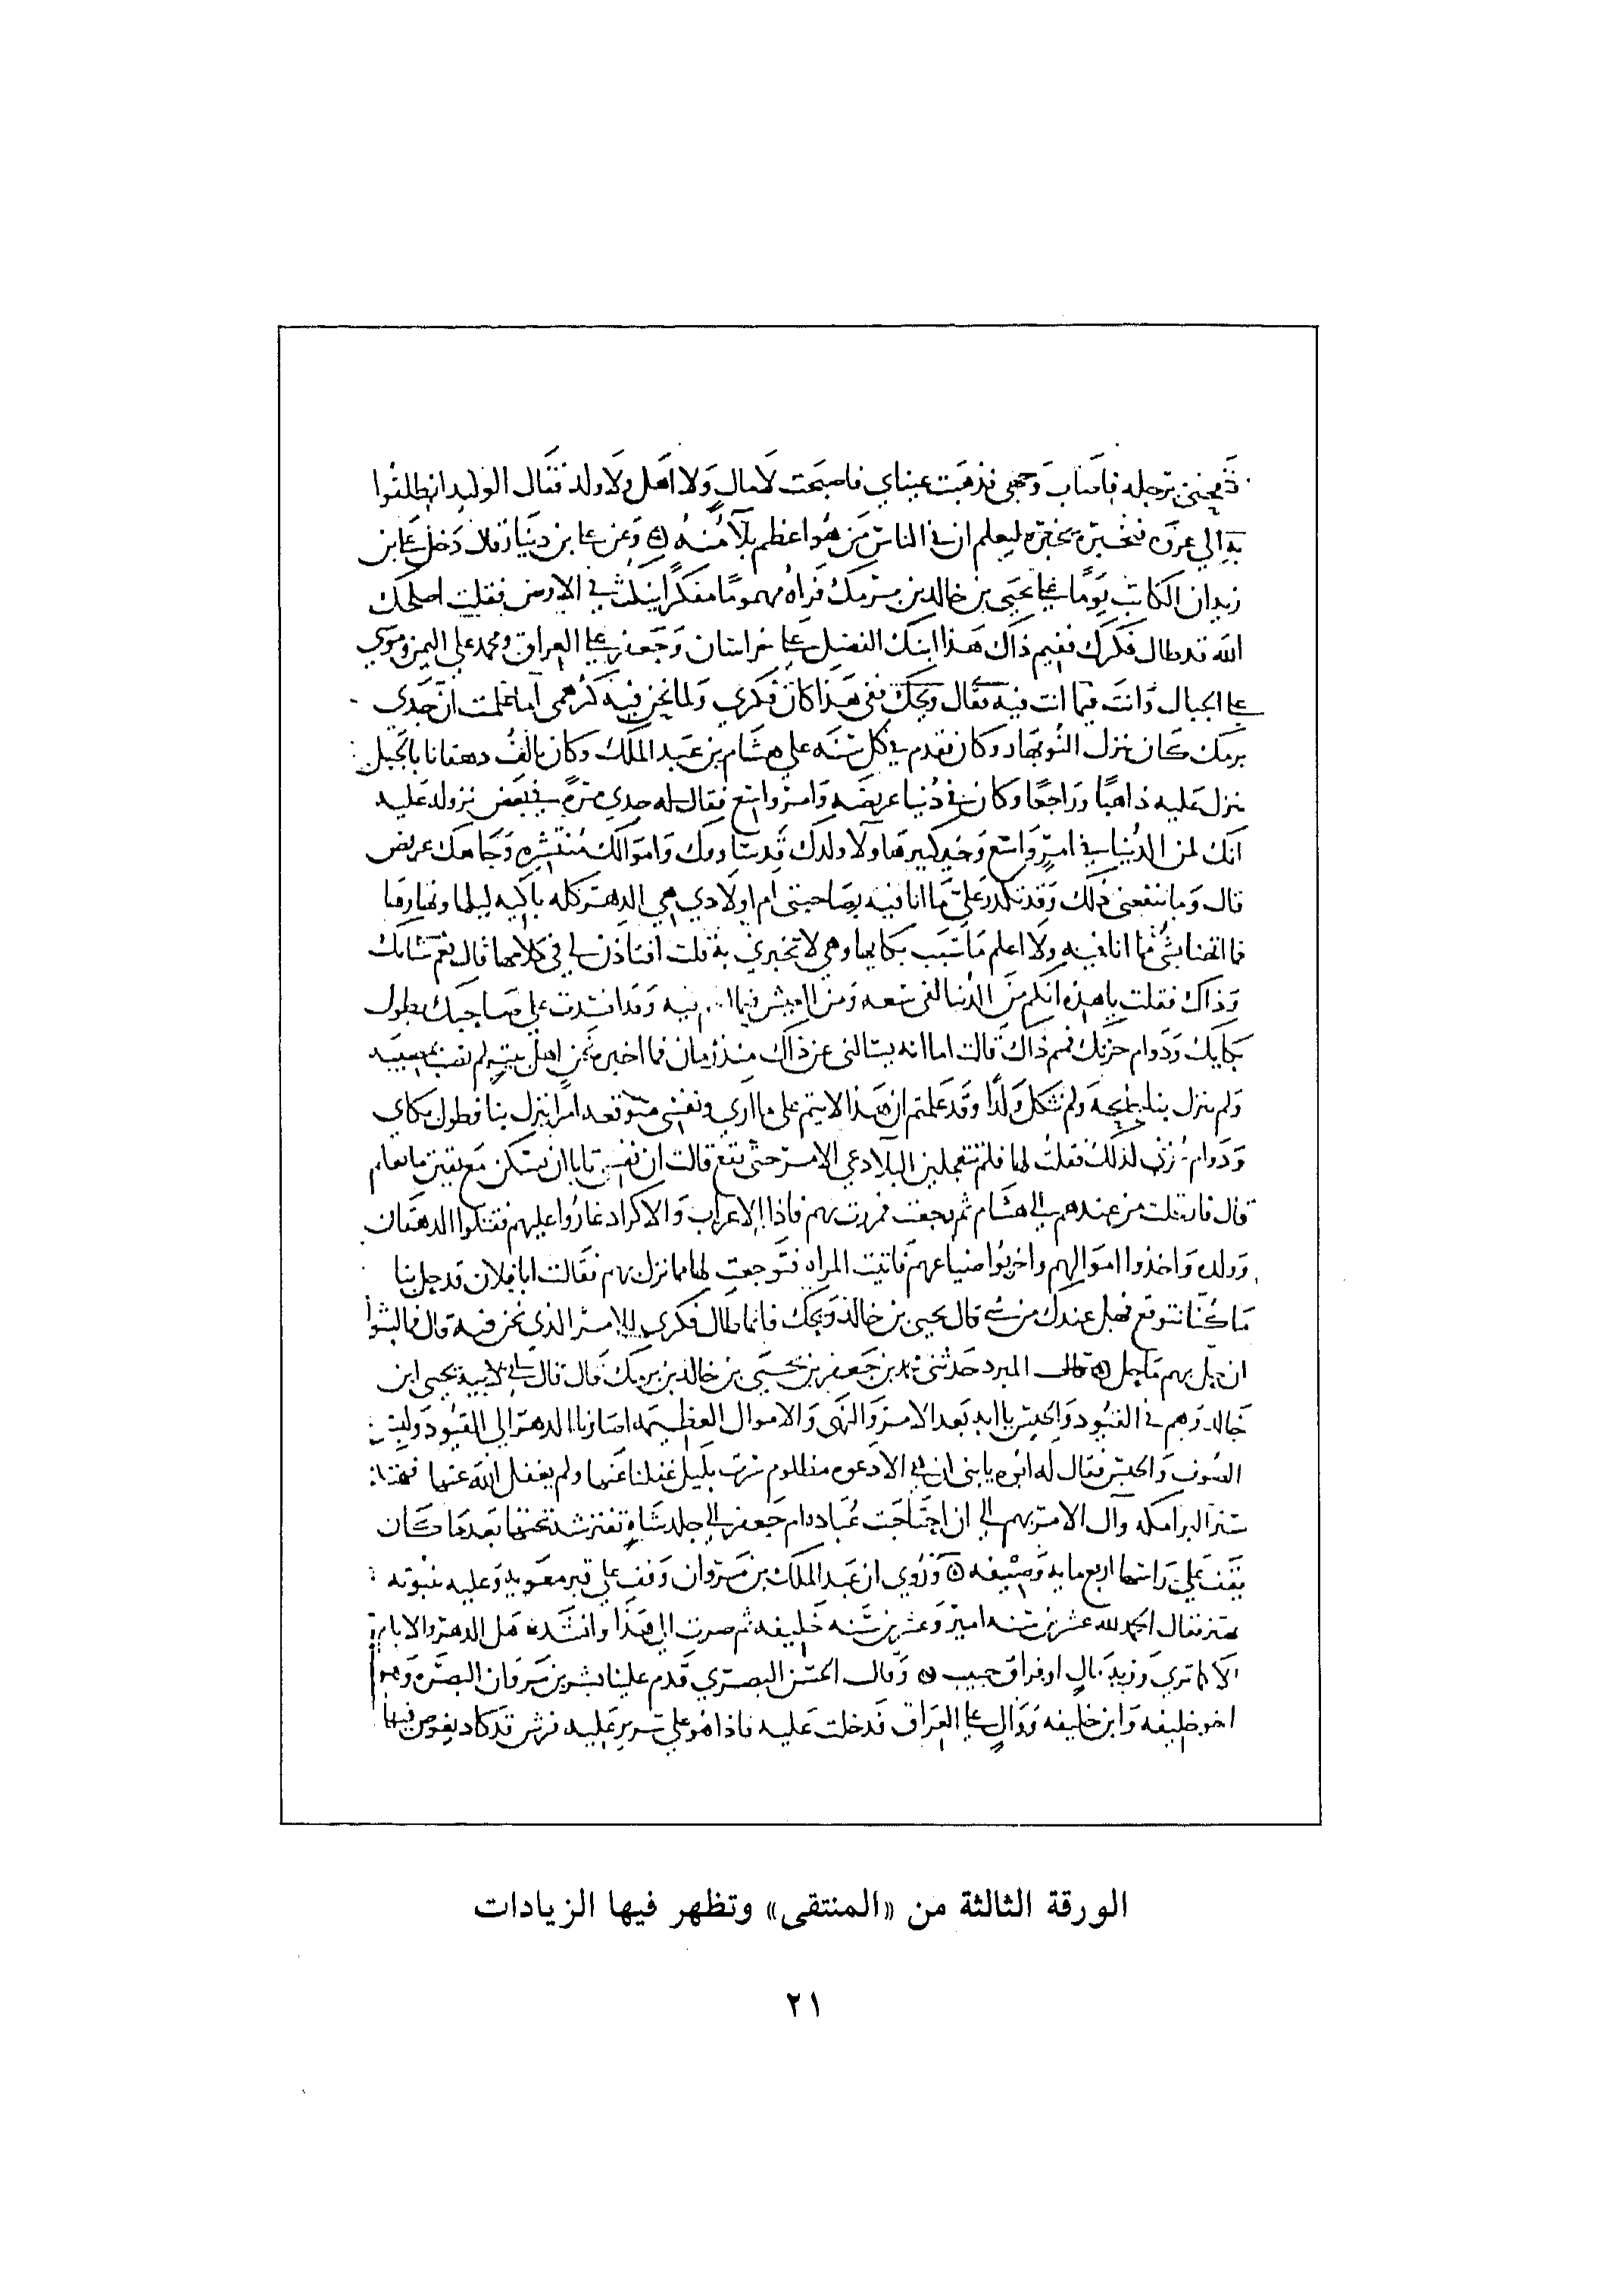 برجله فاصاب وجهي فذهبت عيناي فاصبحت لا مال ولا اهل ولا ولد فقال الوليد انطلقوا
به الي عروه فنخبره بخبره ليعلم ان في الناس من هو اعظم بلا منه وعن علي بن دينار قال دخل علي بن
زيدان الكاتب يوما علي يحيي بن خالد بن برمك فراه مهموما مفكرا ينكث في الارض فقلت اصلحك
الله قد طال فكرك ففيم ذاك هذا ابنك الفضل علي خراسان وجعفر علي العراق ومحمد علي اليمن وموسي
علي الجبال وانت فيما انت فيه فقال ويحك ففي هذا كان فكري ولما نحن فيه كثر همي اما علمت ان جدي
برمك كان ينزل النوبهار وكان يقدم في كل سنه علي هشام بن عبد الملك وكان يالف دهقانا بالجبل
ينزل عليه ذاهبا وراجعا وكان في دنيا عريضه وامر واسع فقال له جدي مره في بعض نزوله عليه
انك لمن الدنيا في امر واسع وخير كبير هاولا ولدك قد ساووك واموالك منتشره وجاهك عريض
قال وما ينفعني ذلك وقد تكدر علي ما انا فيه بصاحبتي ام اولادي هي الدهر كله باكيه ليلها ونهارها
فما اتهنا بشي مما انا فيه ولا اعلم ما سبب بكايها وهي لا تخبرني به قلت افتاذن لي في كلامها قال نعم شانك
وذاك فقلت يا هذه انكم من الدنيا لفي سعه ومن العيش فيما فيه وقد افسدت علي صاحبك بطول
بكايك ودوام حزنك فمم ذاك قالت اما انه يسالني عن ذاك منذ زمان فما اخبره نحن اهل بيت لم نصب بمصيبه
ولم ينزل بنا فجيعه ولم نثكل ولدا وقد علمتم ان هذا لا يتم علي ما اري ونفسي متوقعه امرا ينزل بنا فطول بكاي
ودوام حزني لذلك فقلت لها فلم تتعجلين البلا دعي الامر حتي يقع قالت ان نفسي تابا ان تسكن مع يقين ما تعلم
قال فارتحلت من عندهم الي هشام ثم رجعت فمررت بهم فاذا الاعراب والاكراد غاروا عليهم فقتلوا الدهقان
وولده واخذوا اموالهم واخربوا ضياعهم فاتيت المراه فتوجعت لها مما نزل بهم فقالت ابا فلان قد حل بنا
ما كنا نتوقع فهل عندك من شي قال يحيي بن خالد ويحك فانما طال فكري للامر الذي نحن فيه قال فما لبثوا
ان حل بهم ما حل قال المبرد حدثني محمد بن جعفر بن يحيي بن خالد بن برمك قال قال لابيه يحيي ابن
خالد وهم في القيود والحبس يا ابه بعد الامر والنهي والاموال العظيمه اصارنا الدهر الي القيود ولبس
الصوف والحبس فقال له ابوه يا بني دعوه مظلوم سرت بليل غفلنا عنها ولم يغفل الله عنها
البرامكه وال الامر بهم الي ان احتاجت عباده ام جعفر الي جلد شاه تفترشه تحتها بعد ما كان
يقف علي راسها اربع مايه وصيفه وروي ان عبد الملك بن مروان وقف علي قبر معويه وعليه
تهتز فقال الحمد لله عشرين سنه امير وعشرين سنه خليفه ثم صرت الي هذا وانشد هل الدهر والايام
الا كما تري رزيه مال او فراق حبيب وقال الحسن البصري قدم علينا بشر بن مروان البصره وهو
اخو خليفه وابن خليفه ووال علي العراق فدخلت عليه فاذا هو علي سرير عليه فرش قد كاد يغوص فيها
الورقة الثالثة من «المنتقى» وتظهر فيها الزيادات
٢١